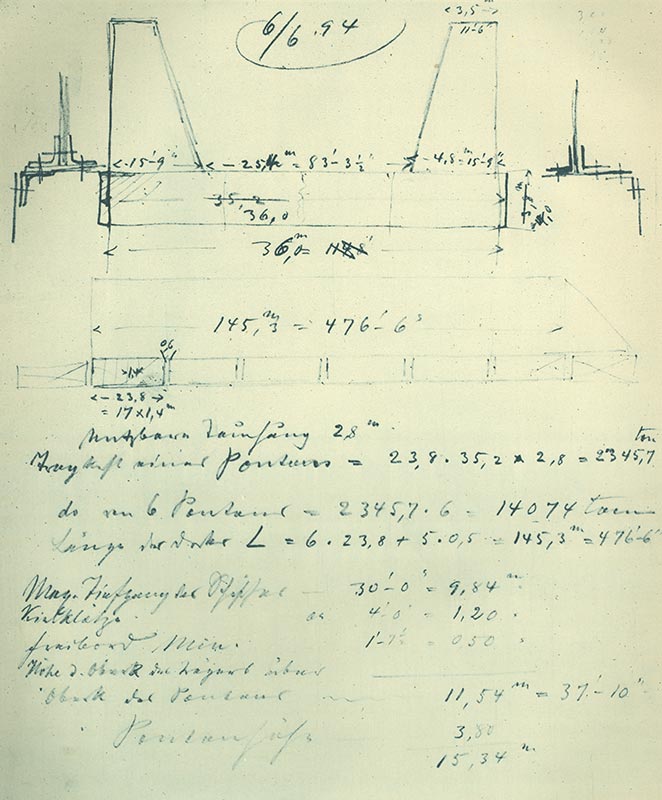 6/6.94
3,5 m
11-6"
15'-9"
25,4 m = 83'-3½"
4,8 = 15'-9"
35,2
36,0
36,0 m =
145,3 m = 476'-6"
0,6
1,4
23,8
= 17 x 1,4 m
Nutzbare Tauchung 2,8 m
Tragkraft eines Pontons = 23,8 . 35,2 x 2,8 = 2345,7 ton
do von 6 Pontons = 2345,7 . 6 = 14074 tons
Länge des Docks L = 6 . 23,8 + 5 . 0,5 = 145,3 m = 476'-6"
Max. Tiefgang des Schiffes — 30'-0" = 9,84 m
Kielklötze 4'-0" = 1,20 "
Freibord Min. 1'-7½" = 0,50 "
Höhe d. Oberk. des Trägers über
Oberk. des Pontons — 11,54 m = 37'-10"
Pontonhöhe 3,80
15,34 m